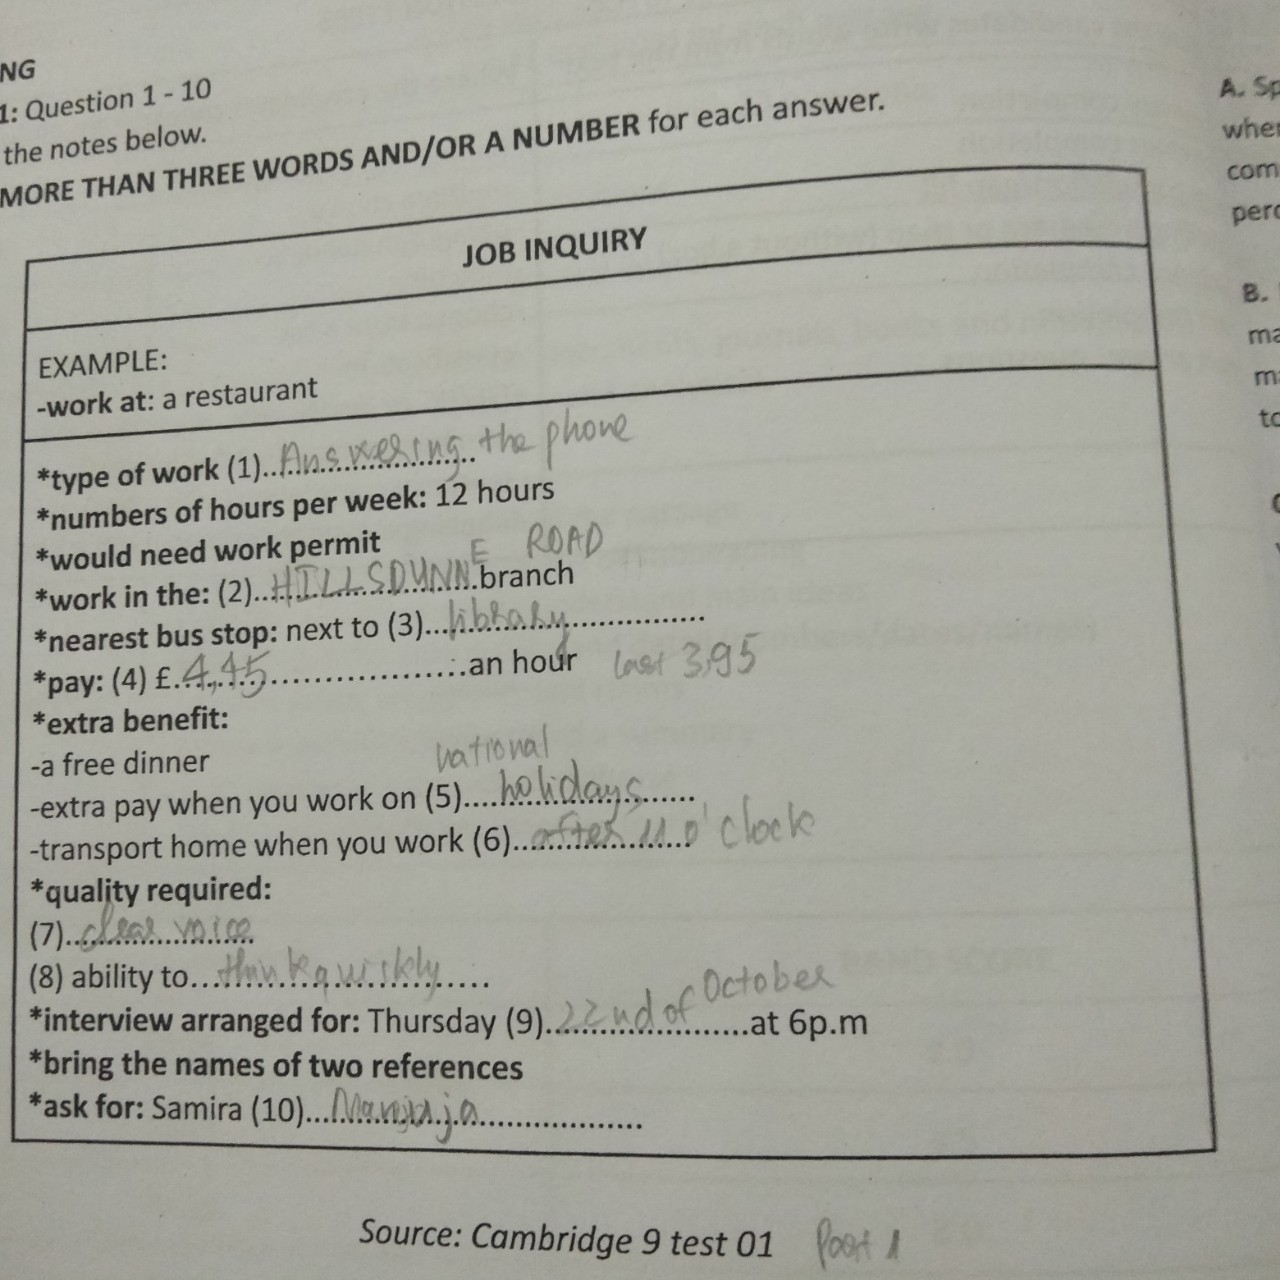 NG
1: Question 1 - 10
the notes below.
MORE THAN THREE WORDS AND/OR A NUMBER for each answer.
JOB INQUIRY
EXAMPLE:
-work at: a restaurant
*type of work (1)..Answering the phone
*numbers of hours per week: 12 hours
*would need work permit
*work in the: (2)..HILLSDUNNE ROAD branch
*nearest bus stop: next to (3)...library..............
*pay: (4) £.4,45...................an hour last 3,95
*extra benefit:
-a free dinner
-extra pay when you work on (5)....national holidays.....
-transport home when you work (6)...after 11 o'clock
*quality required:
(7)..clear voice
(8) ability to...think quickly....
*interview arranged for: Thursday (9)..22nd of October.....at 6p.m
*bring the names of two references
*ask for: Samira (10)...................................
Source: Cambridge 9 test 01 Part 1
A. Sp
when
com
perc
B.
ma
ma
to